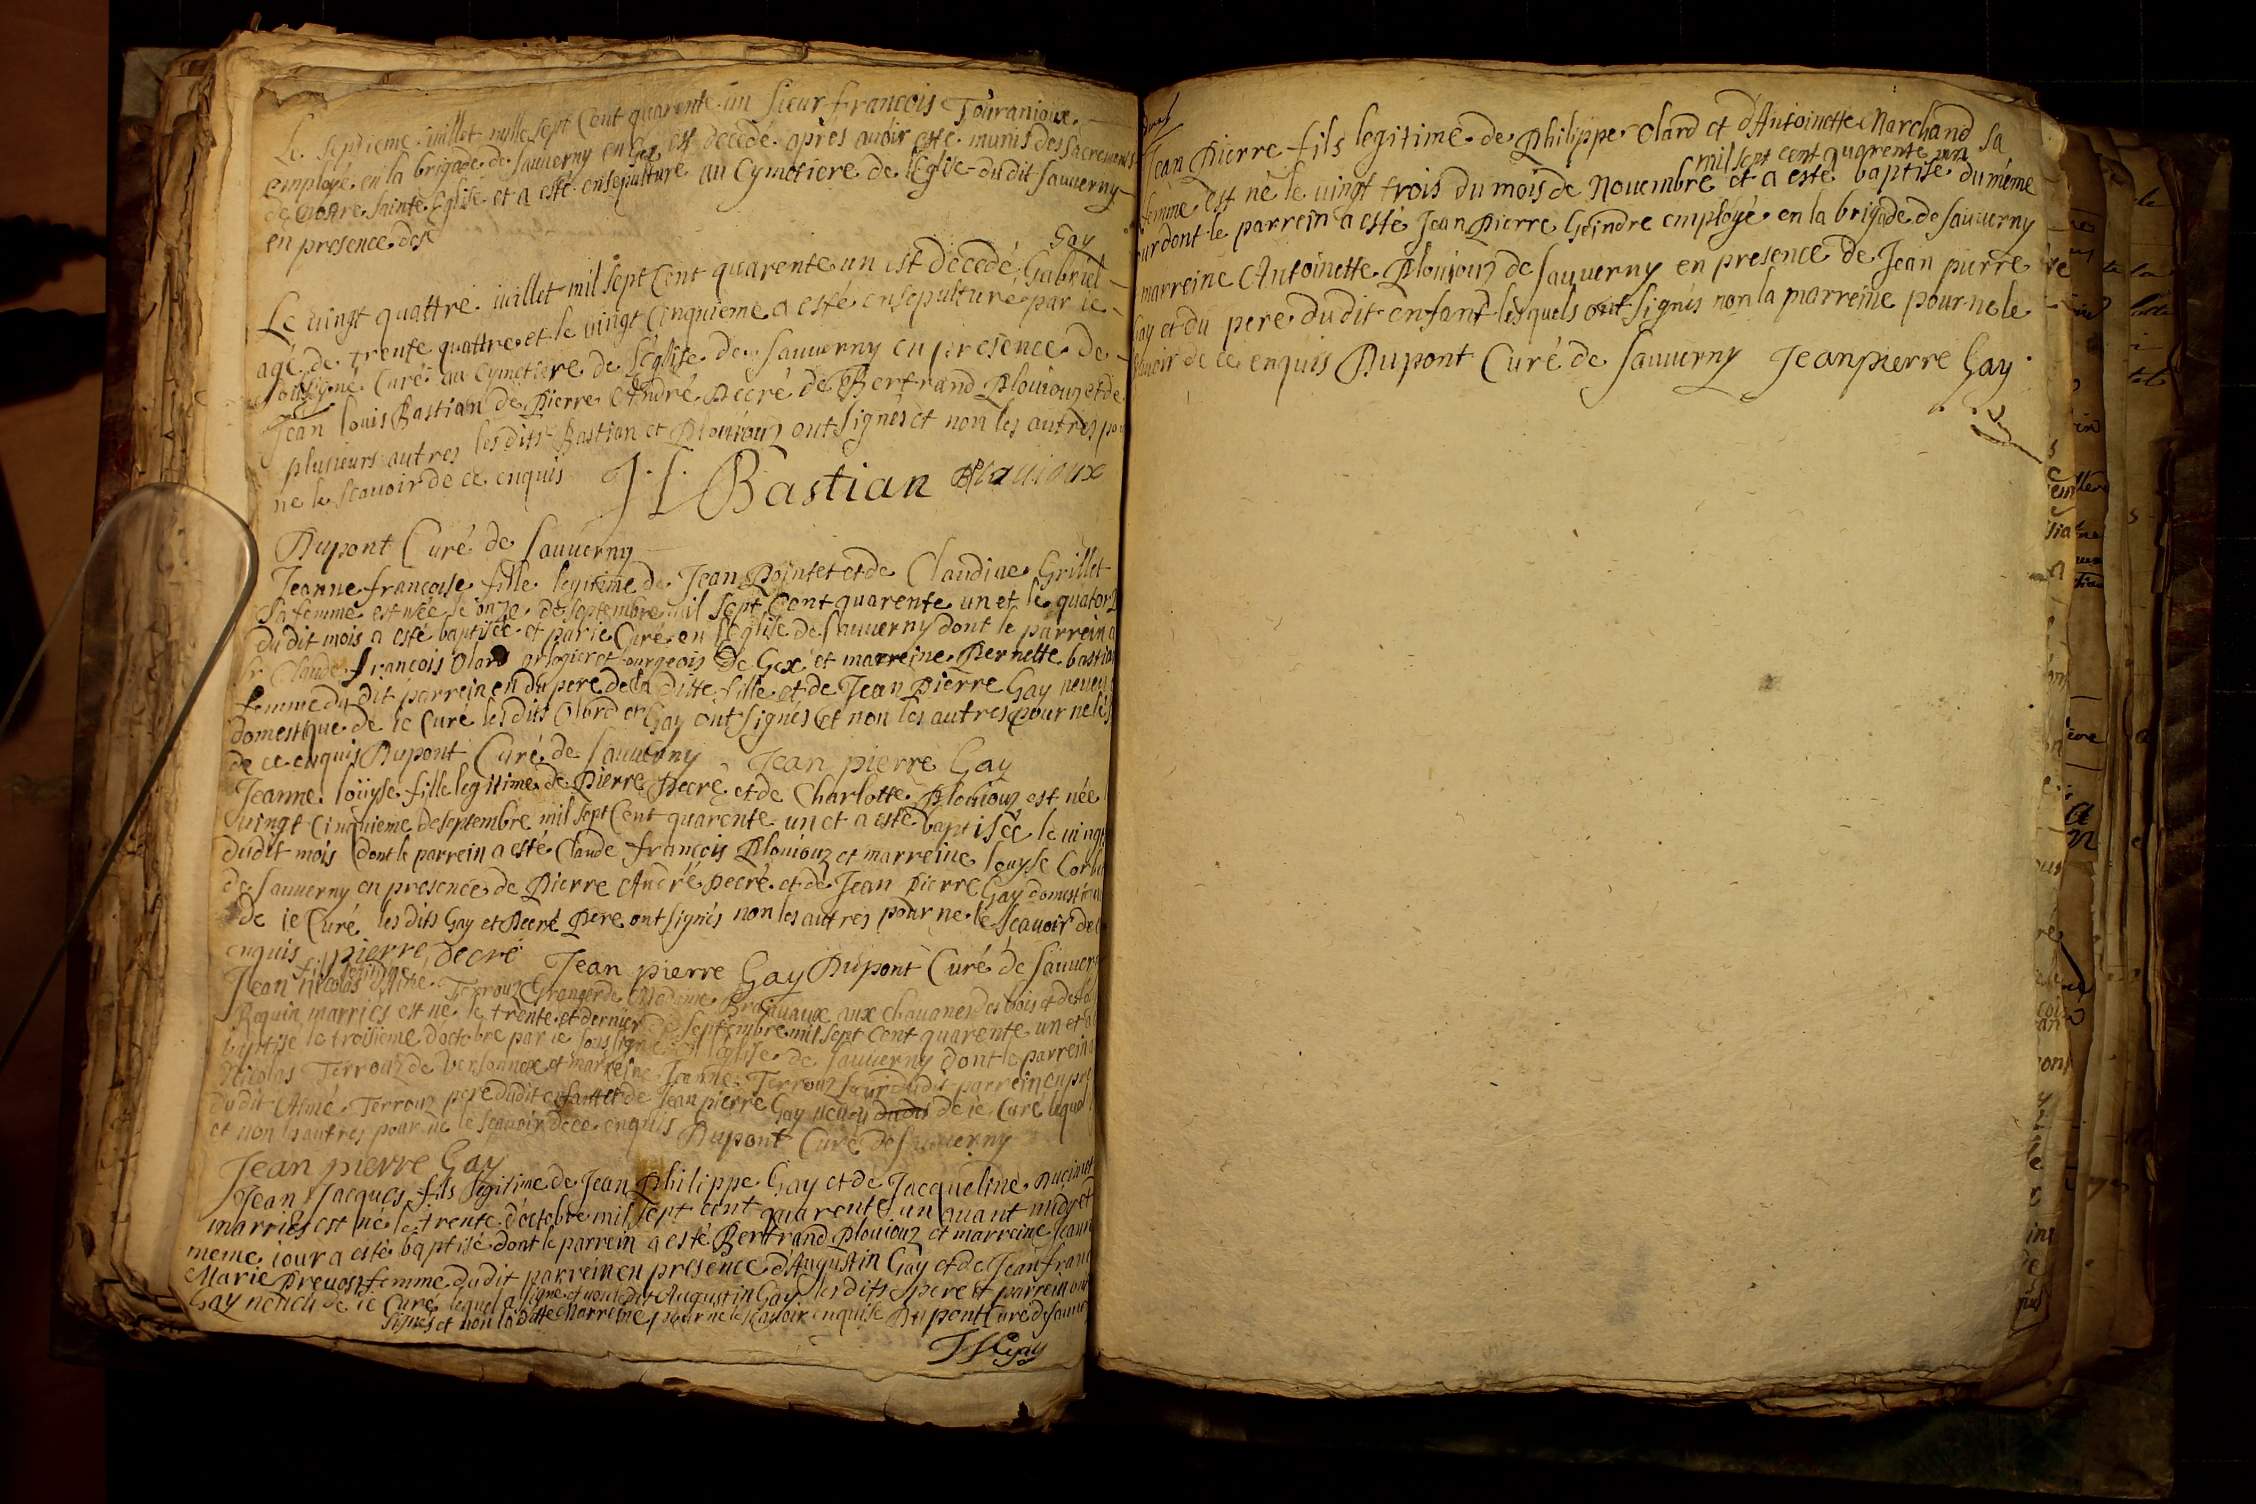 Le septieme iuillet mille sept Cent quarente un sieur francois Touranioux
employé en la brigade de sauuerny en Gex est decedé apres auoir esté munis des sacremens
de nostre sainte Eglise et a esté ensepulturé au Cymetiere de l'Eglise du dit sauuerny
en presence des
Gay
Le uingt quattre iuillet mil sept Cent quarente un est decedé Gabriel
agé de trente quattre et le uingt Cinquieme a esté ensepulturé par ie
soussigné Curé au cymetiere de l'église de sauuerny en presence de
Jean louis Bastian de Pierre André Decré de Bertrand Plouiouz et de
plusieurs autres lesdits Bastian et Plouiouz ont signés et non les autres pou
ne le scauoir de ce enquis J. L. Bastian Plauioux
Dupont Curé de sauuerny
Jeanne francoise fille legitime de Jean Pointet et de Claudine Grillet
sa femme est née le onze de septembre mil sept Cent quarente un et le quatorz
dudit mois a esté baptisée et par ie Curé en l'Eglise de sauuerny dont le parrein a
sr Claude francois olard orlogier et bourgeois de Gex et marreine Pernette bastian
femme du dit parrein en du pere de la ditte fille et de Jean Pierre Gay neueu
domestique de ie Curé lesdits olard et Gay ont signés et non les autres pour ne le s
de ce enquis Dupont Curé de sauuerny Jean pierre Gay
Jeanne loüyse fille legitime de Pierre Decré et de Charlotte Plouiouz est née
uingt Cinquieme de septembre mil sept Cent quarente un et a esté baptisée le uingt
dudit mois dont le parrein a esté Claude francois Plouiouz et marreine louyse Corb
de sauuerny en presence de Pierre André Decré et de Jean Pierre Gay domestique
de ie Curé les dits Gay et Decré Pere ont signés non les autres pour ne le scauoir de
enquis pierre decré Jean pierre Gay Dupont Curé de sauuer
fils legitime
Jean nicolas d'Aimé Terrouz Granger de Madame aux chauanes des bois et de
Roquin marriés est né le trente et dernier de septembre mil sept cent quarente un et a
baptisé le troisieme d'octobre par ie soussigné en l'église de sauuerny dont le parrein a
Nicolas Terrouz de Versonnex et marreine Jeanne Terrouz soeur dudit parrein en pre
du dit Aimé Terrouz pere dudit enfant et de Jean pierre Gay neueu dudit de ie Curé lequel
et non les autres pour ne le scauoir de ce enquis Dupont Curé de sauuerny
Jean pierre Gay
Jean Jacques fils legitime de Jean Philippe Gay et de Jacqueline Ducimet
marriés est né le trente d'octobre mil sept cent quarente un auant midy et
meme iour a esté baptisé dont le parrein a esté Bertrand Plouiouz et marreine Jeanne
Marie Preuost femme dudit parrein en presence d'Augustin Gay et de Jean franc
Gay neueu de ie Curé lequel a signé et non ledit Augustin Gay lesdits pere et parrein ont
signés et non la ditte Marreine pour ne le scauoir enquise Dupont Curé de sauuer
Gay
Jean Pierre fils legitime de Philippe olard et d'Antoinette Marchand sa
mil sept cent quarente un
femme est né le uingt trois du mois de Nouembre et a esté baptisé du méme
iour dont le parrein a esté Jean Pierre Geindre employé en la brigade de sauuerny
marreine Antoinette Plouiouz de sauuerny en presence de Jean pierre
Gay et du pere dudit enfant lesquels ont signés non la marreine pour ne le
scauoir de ce enquis Dupont Curé de sauuerny Jean pierre Gay